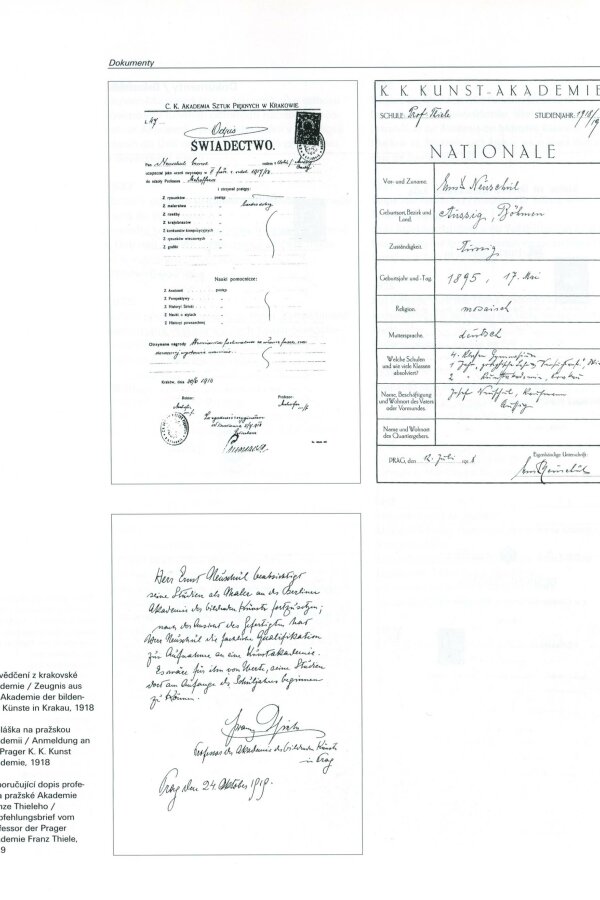 Dokumenty
C. K. AKADEMIA SZTUK PIĘKNYCH W KRAKOWIE.
L. 47
Odpis
ŚWIADECTWO.
Pan
uczęszczał jako uczeń zwyczajny w
do szkoły Profesora
i otrzymał postępy:
Z rysunków postęp
Z malarstwa „
Z rzeźby „
Z krajobrazów „
Z konkursów kompozycyjnych „
Z rysunków wieczornych „
Z grafiki „
Nauki pomocnicze:
Z Anatomii postęp
Z Perspektywy „
Z Historyi Sztuki „
Z Nauki o stylach „
Z Historyi powszechnej „
Otrzymane nagrody
Kraków, dnia 30/6 1918
Rektor: Profesor:
K. K. KUNST-AKADEMIE
SCHULE: Prof. Thiele STUDIENJAHR: 1918/19
NATIONALE
Vor- und Zuname. Ernst Neuschul
Geburtsort, Bezirk und Land. Aussig, Böhmen
Zuständigkeit. Aussig
Geburtsjahr und -Tag. 1895, 17. Mai
Religion. mosaisch
Muttersprache. deutsch
Welche Schulen und wie viele Klassen absolviert? 4. Klassen Gymnasium
1 Jahr
2 " Kunstakademie, Krakau
Name, Beschäftigung und Wohnort des Vaters oder Vormundes. Josef Neuschul, Kaufmann
Aussig
Name und Wohnort des Quartiergebers.
PRAG, den 12. Juli 1918 Eigenhändige Unterschrift:
Ernst Neuschul
Herr Ernst Neuschul beabsichtigt
seine Studien als Maler an der Berliner
Akademie der bildenden Künste fortzusetzen;
nach der Ansicht des Gefertigten hat
Herr Neuschul die fachliche Qualifikation
zur Aufnahme an eine Kunstakademie.
Es wäre für ihn von Werte, seine Studien
dort am Anfange des Schuljahres beginnen
zu können.
Franz Thiele
Professor der Akademie der bildenden Künste
in Prag
Prag den 24. Oktober 1919.
vědčení z krakovské
demie / Zeugnis aus
Akademie der bilden-
Künste in Krakau, 1918
láška na pražskou
demii / Anmeldung an
Prager K. K. Kunst
demie, 1918
poručující dopis profe-
a pražské Akademie
nze Thieleho /
pfehlungsbrief vom
fessor der Prager
demie Franz Thiele,
9